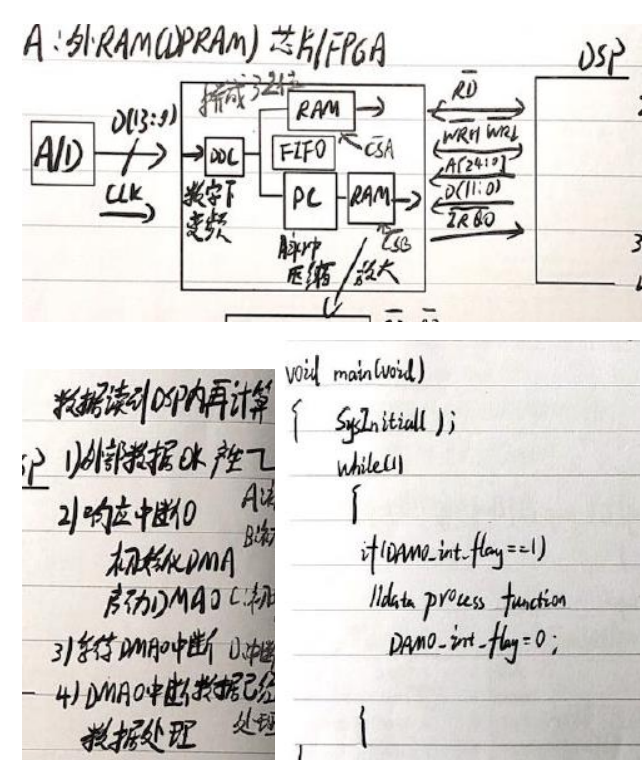 A:外RAM(DPRAM)芯片/FPGA
DSP
拼成32位
D(13:0)
A/D
CLK
DDC
数字下
变频
RAM
FIFO
CSA
PC
RAM
CSB
脉冲
压缩
放大
RD
WRH WRL
A[24:0]
D(11:0)
IRQ0
数据读到DSP内再计算
1)外部数据OK 产生
2)响应中断0
初始化DMA
启动DMA0
3)等待DMA0中断
4)DMA0中断数据已经
数据处理
处理
void main(void)
{ SysInitial();
while(1)
{
if(DAM0_int_flag==1)
//data process function
DAM0_int_flag=0;
{